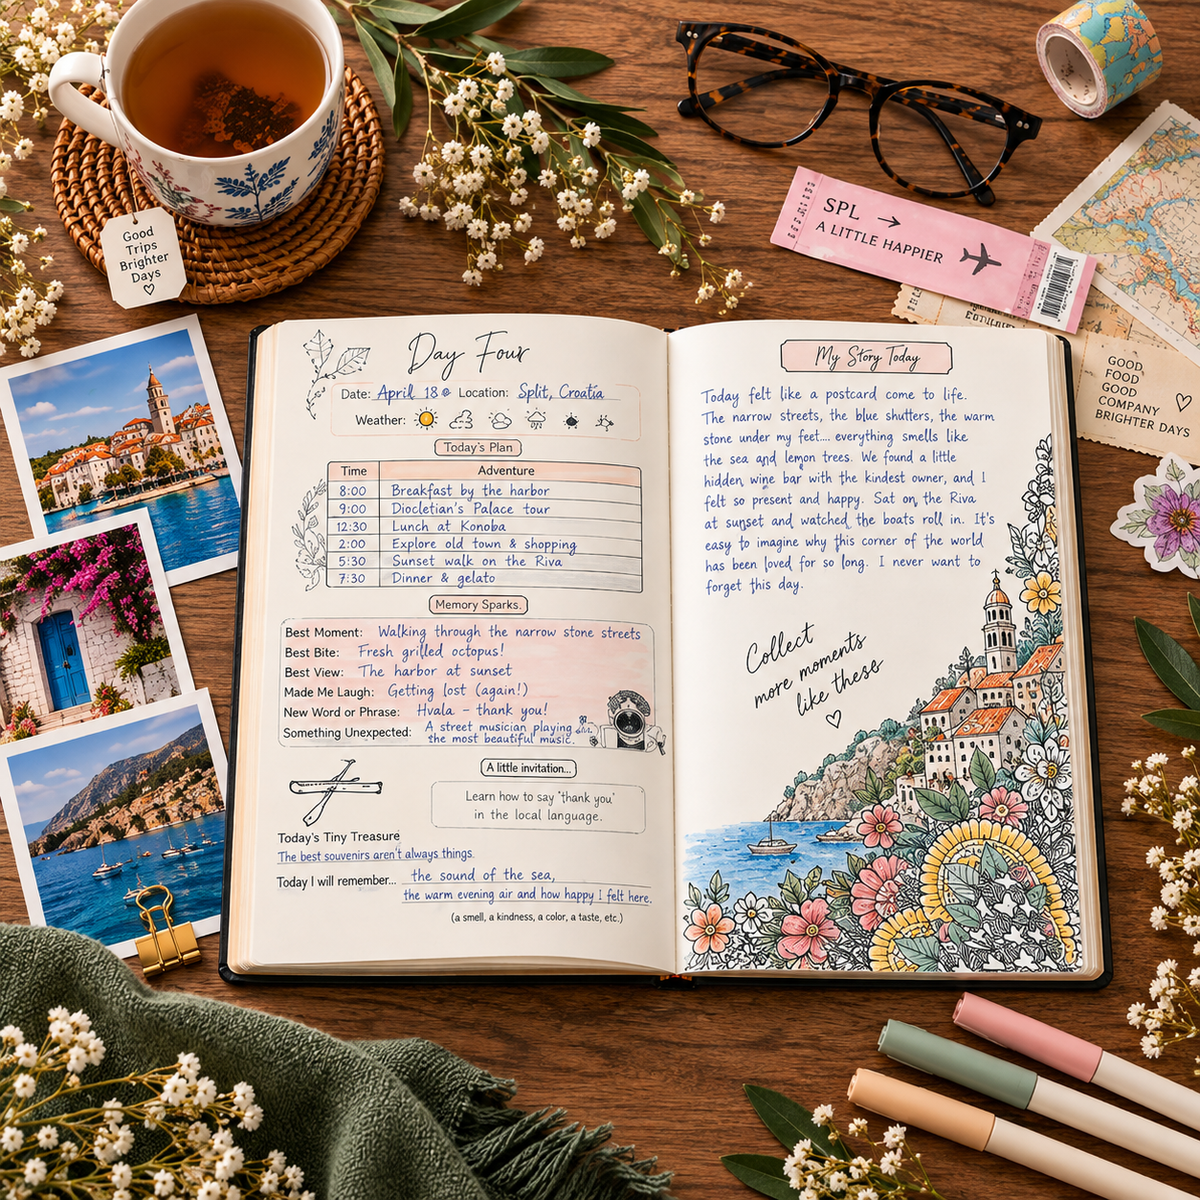 Good
Trips
Brighter
Days
SPL →
A LITTLE HAPPIER
GOOD
FOOD
GOOD
COMPANY
BRIGHTER DAYS
Day Four
Date: April 18 Location: Split, Croatia
Weather:
Today's Plan
Time Adventure
8:00 Breakfast by the harbor
9:00 Diocletian's Palace tour
12:30 Lunch at Konoba
2:00 Explore old town & shopping
5:30 Sunset walk on the Riva
7:30 Dinner & gelato
Memory Sparks.
Best Moment: Walking through the narrow stone streets
Best Bite: Fresh grilled octopus!
Best View: The harbor at sunset
Made Me Laugh: Getting lost (again!)
New Word or Phrase: Hvala – thank you!
Something Unexpected: A street musician playing
the most beautiful music.
A little invitation...
Learn how to say "thank you"
in the local language.
Today's Tiny Treasure
The best souvenirs aren't always things.
Today I will remember... the sound of the sea,
the warm evening air and how happy I felt here.
(a smell, a kindness, a color, a taste, etc.)
My Story Today
Today felt like a postcard come to life.
The narrow streets, the blue shutters, the warm
stone under my feet.... everything smells like
the sea and lemon trees. We found a little
hidden wine bar with the kindest owner, and I
felt so present and happy. Sat on the Riva
at sunset and watched the boats roll in. It's
easy to imagine why this corner of the world
has been loved for so long. I never want to
forget this day.
Collect
more moments
like these